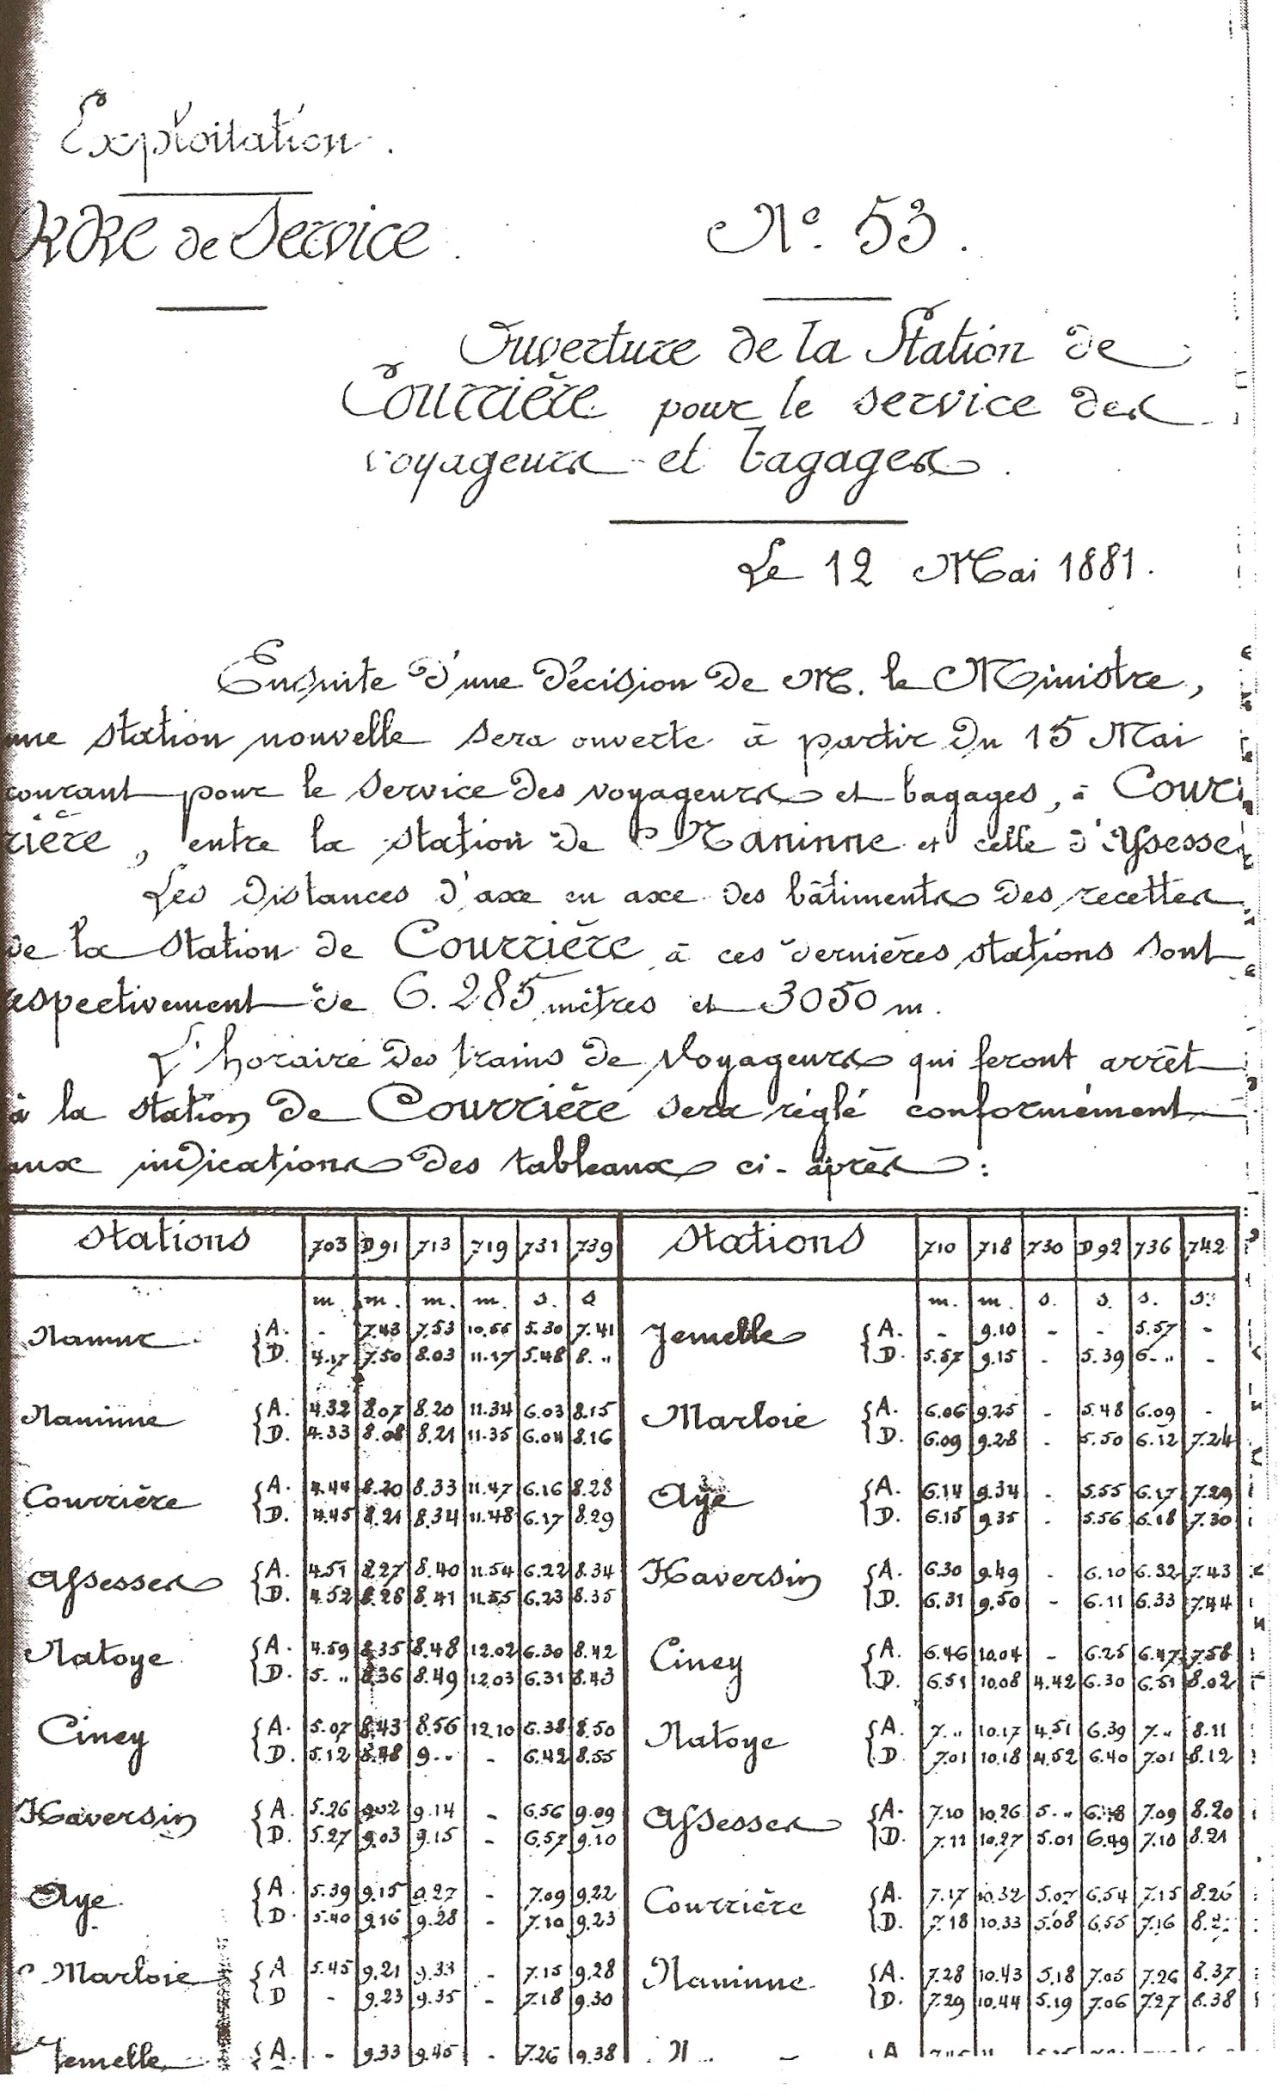 Exploitation.
RDRE de Service. N° 53.
Ouverture de la Station de
Courrière pour le service des
voyageurs et bagages.
Le 12 Mai 1881.
Ensuite d'une décision de M. le Ministre,
une station nouvelle sera ouverte à partir du 15 Mai
courant pour le service des voyageurs et bagages, à Cour
rière, entre la station de Naninne et celle d'Assesse
Les distances d'axe en axe des bâtiments des recettes
de la station de Courrière à ces dernières stations sont
respectivement de 6.285 mètres et 3050 m.
L'horaire des trains de Voyageurs qui feront arrêt
à la station de Courrière sera réglé conformément
aux indications des tableaux ci-après :
Stations 703 D91 713 719 731 739 Stations 710 718 730 D92 736 742
m. m. m. m. s. s. m. m. s. s. s. s.
Namur A. - 7.43 7.53 10.55 5.30 7.41 Jemelle A. - 9.10 - - 5.57 -
D. 4.17 7.50 8.03 11.17 5.48 8. " D. 5.57 9.15 - 5.39 6. " -
Naninne A. 4.32 8.07 8.20 11.34 6.03 8.15 Marloie A. 6.06 9.25 - 5.48 6.09 -
D. 4.33 8.08 8.21 11.35 6.04 8.16 D. 6.09 9.28 - 5.50 6.12 7.24
Courrière A. 4.44 8.20 8.33 11.47 6.16 8.28 Aye A. 6.14 9.34 - 5.55 6.17 7.29
D. 4.45 8.21 8.34 11.48 6.17 8.29 D. 6.15 9.35 - 5.56 6.18 7.30
Assesses A. 4.51 8.27 8.40 11.54 6.22 8.34 Haversin A. 6.30 9.49 - 6.10 6.32 7.43
D. 4.52 8.28 8.41 11.55 6.23 8.35 D. 6.31 9.50 - 6.11 6.33 7.44
Natoye A. 4.59 8.35 8.48 12.02 6.30 8.42 Ciney A. 6.46 10.04 - 6.25 6.47 7.58
D. 5. " 8.36 8.49 12.03 6.31 8.43 D. 6.51 10.08 4.42 6.30 6.51 8.02
Ciney A. 5.07 8.43 8.56 12.10 6.38 8.50 Natoye A. 7. " 10.17 4.51 6.39 7. " 8.11
D. 5.12 8.48 9. " - 6.42 8.55 D 7.01 10.18 4.52 6.40 7.01 8.12
Haversin A. 5.26 9.02 9.14 - 6.56 9.09 Assesses A. 7.10 10.26 5. " 6.48 7.09 8.20
D. 5.27 9.03 9.15 - 6.57 9.10 D. 7.11 10.27 5.01 6.49 7.10 8.21
Aye A. 5.39 9.15 9.27 - 7.09 9.22 Courrière A. 7.17 10.32 5.07 6.54 7.15 8.26
D. 5.40 9.16 9.28 - 7.10 9.23 D. 7.18 10.33 5.08 6.55 7.16
Marloie A 5.45 9.21 9.33 - 7.15 9.28 Naninne A. 7.28 10.43 5.18 7.05 7.26 8.37
D - 9.23 9.35 - 7.18 9.30 D. 7.29 10.44 5.19 7.06 7.27 8.38
Jemelle A. - 9.33 9.45 - 7.26 9.38 A